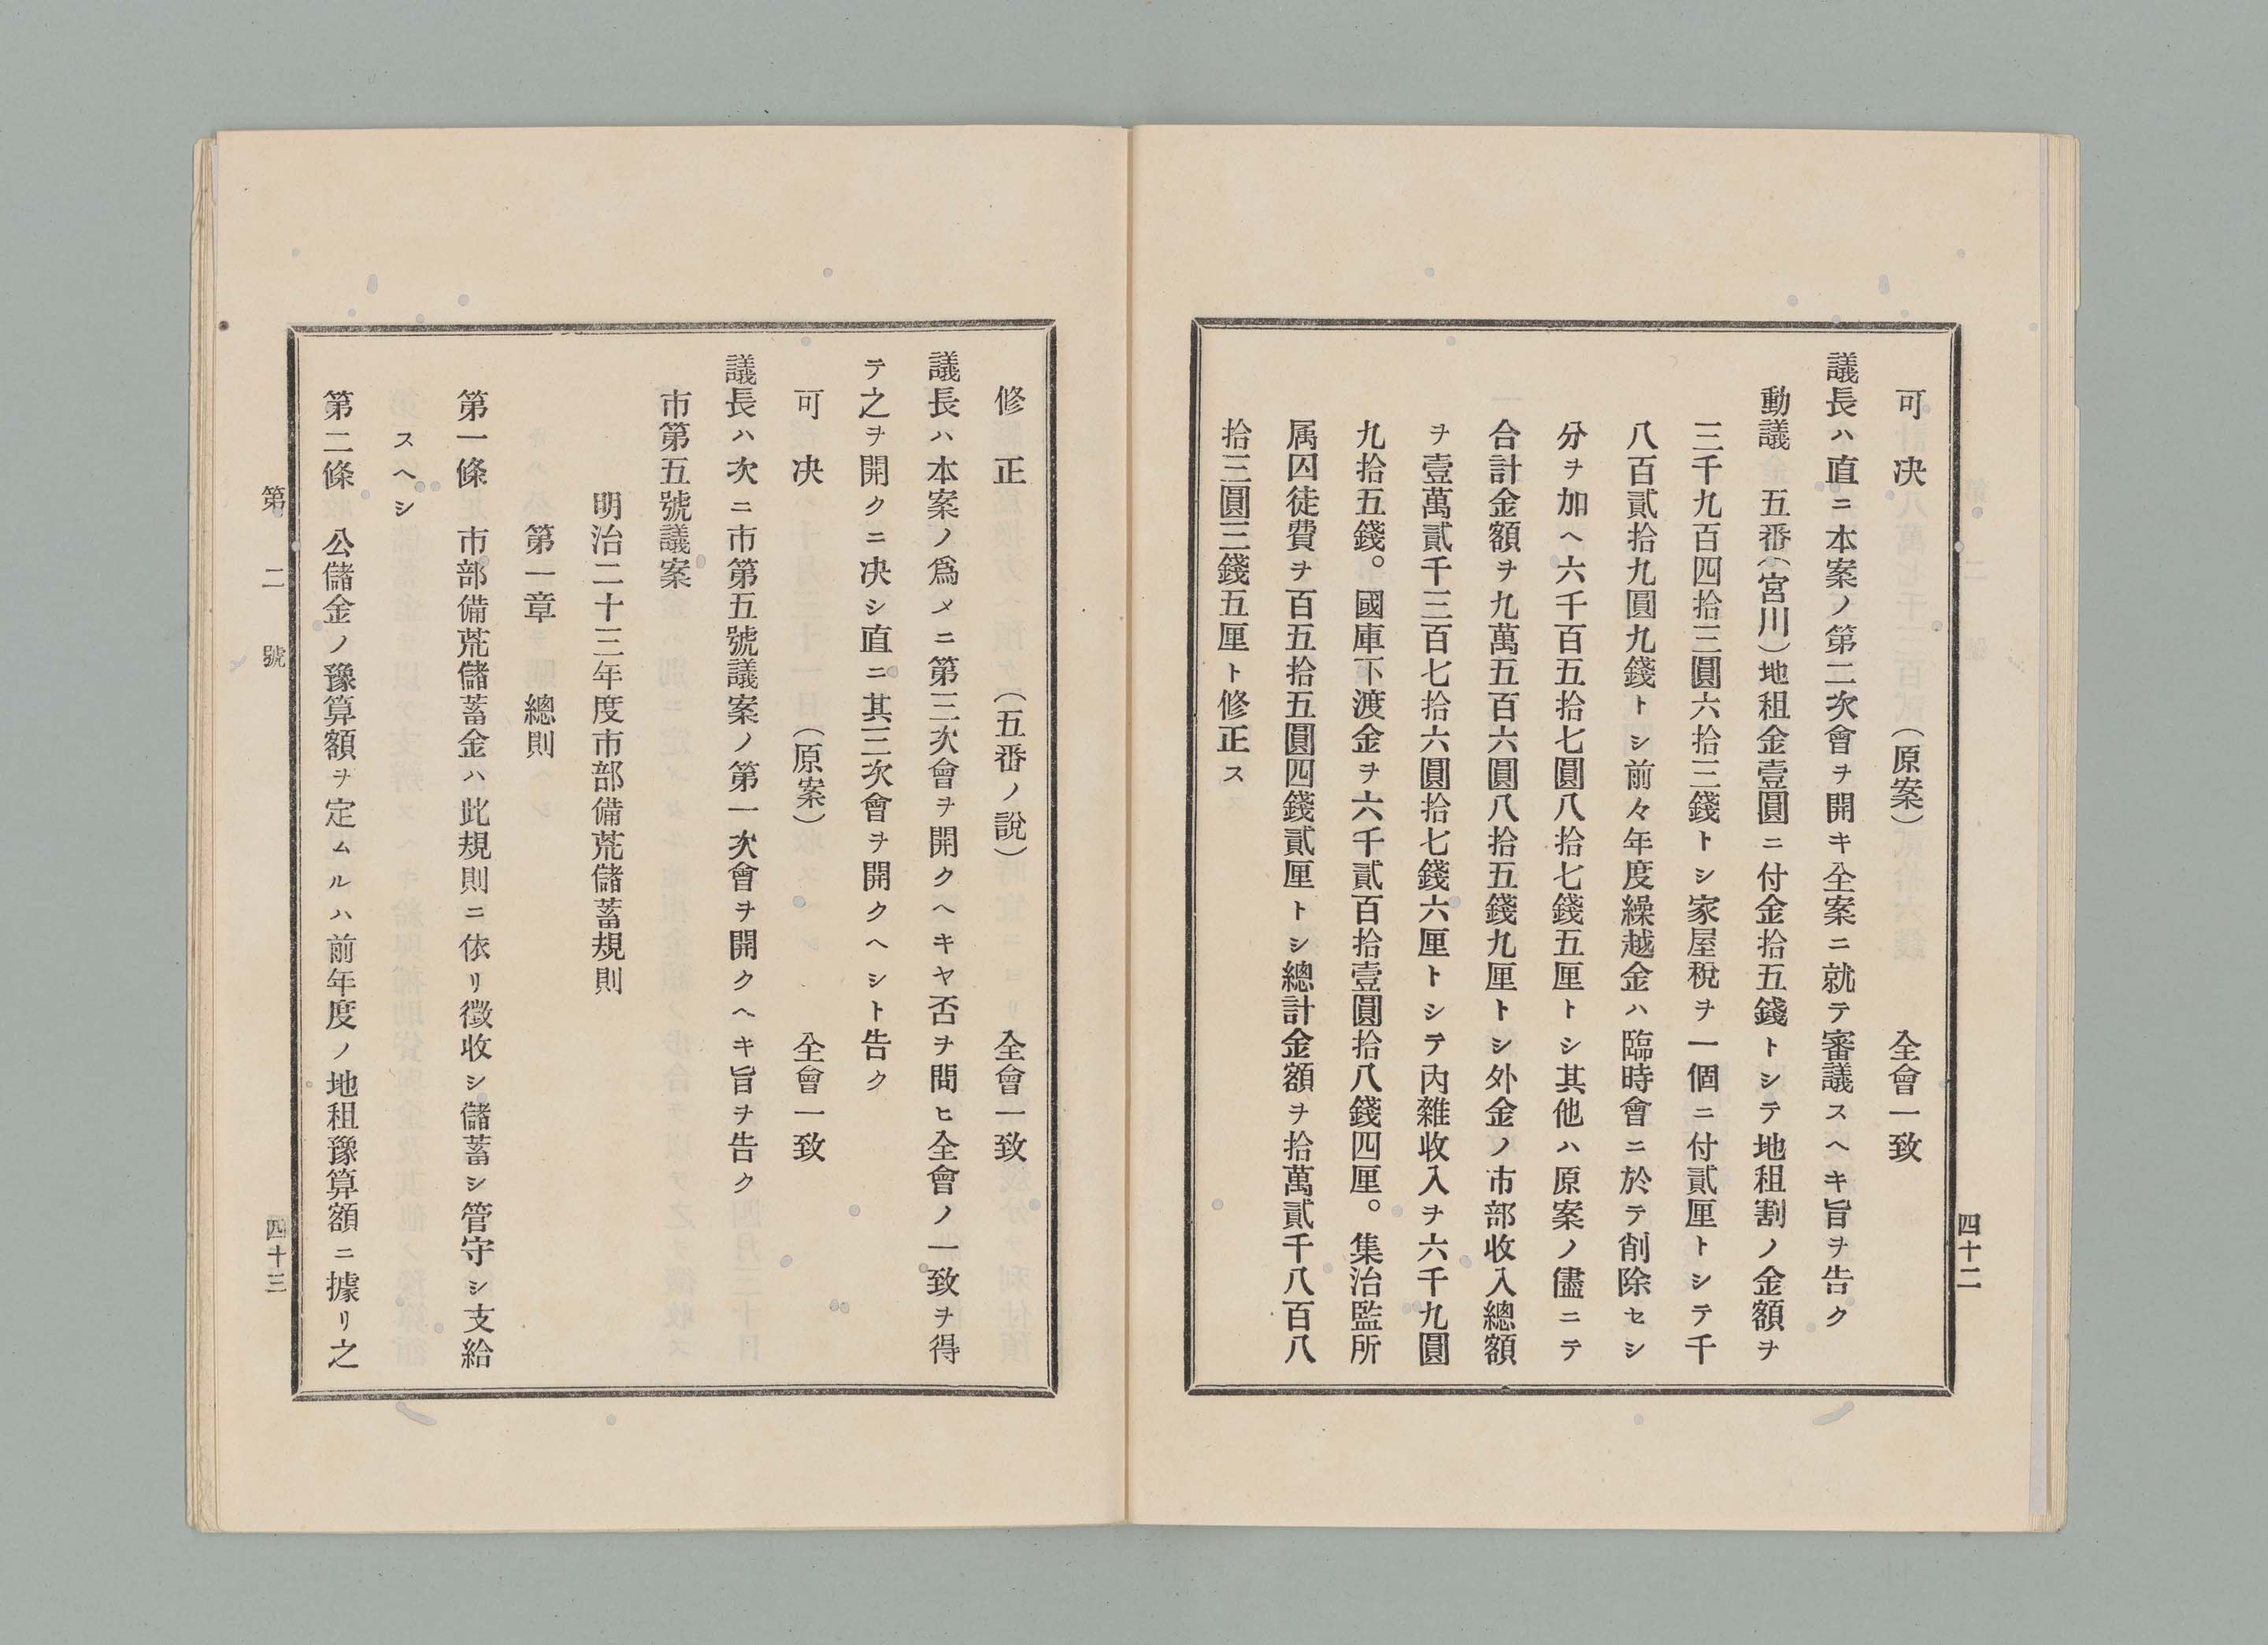 可決　　　　　　　（原案）　　　　　　全會一致
議長ハ直ニ本案ノ第二次會ヲ開キ全案ニ就テ審議スヘキ旨ヲ告ク
動議　五番（宮川）地租金壹圓ニ付金拾五錢トシテ地租割ノ金額ヲ
三千九百四拾三圓六拾三錢トシ家屋稅ヲ一個ニ付貳厘トシテ千
八百貳拾九圓九錢トシ前々年度繰越金ハ臨時會ニ於テ削除セシ
分ヲ加ヘ六千百五拾七圓八拾七錢五厘トシ其他ハ原案ノ儘ニテ
合計金額ヲ九萬五百六圓八拾五錢九厘トシ外金ノ市部收入總額
ヲ壹萬貳千三百七拾六圓拾七錢六厘トシテ內雜收入ヲ六千九圓
九拾五錢。國庫下渡金ヲ六千貳百拾壹圓拾八錢四厘。集治監所
属囚徒費ヲ百五拾五圓四錢貳厘トシ總計金額ヲ拾萬貳千八百八
拾三圓三錢五厘ト修正ス
四十二
修正　　　　　　　（五番ノ說）　　　　　全會一致
議長ハ本案ノ爲メニ第三次會ヲ開クヘキヤ否ヲ問ヒ全會ノ一致ヲ得
テ之ヲ開クニ决シ直ニ其三次會ヲ開クヘシト告ク
可决　　　　　　　（原案）　　　　　　全會一致
議長ハ次ニ市第五號議案ノ第一次會ヲ開クヘキ旨ヲ告ク
市第五號議案
明治二十三年度市部備荒儲蓄規則
第一章　　總則
第一條　市部備荒儲蓄金ハ此規則ニ依リ徵收シ儲蓄シ管守シ支給
スヘシ
第二條　公儲金ノ豫算額ヲ定ムルハ前年度ノ地租豫算額ニ據リ之
第二號
四十三